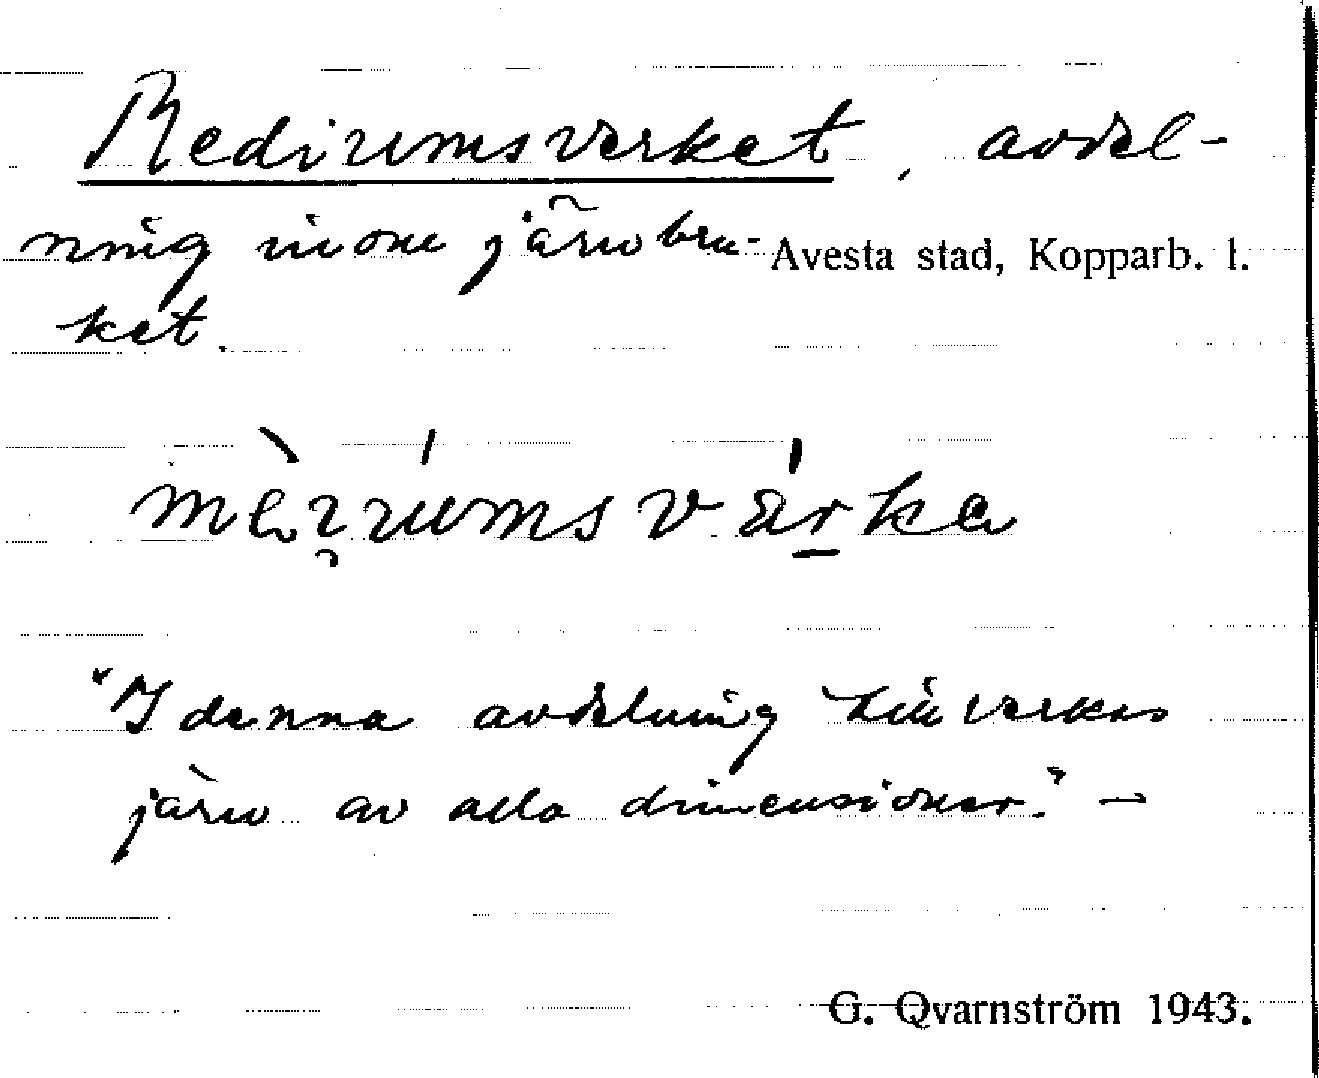 Mediumsverket, avdel-
ning inom järnbru-
Avesta stad, Kopparb. l.
ket.
"I denna avdelning tillverkas
järn av alla dimensioner." –
G. Qvarnström 1943.